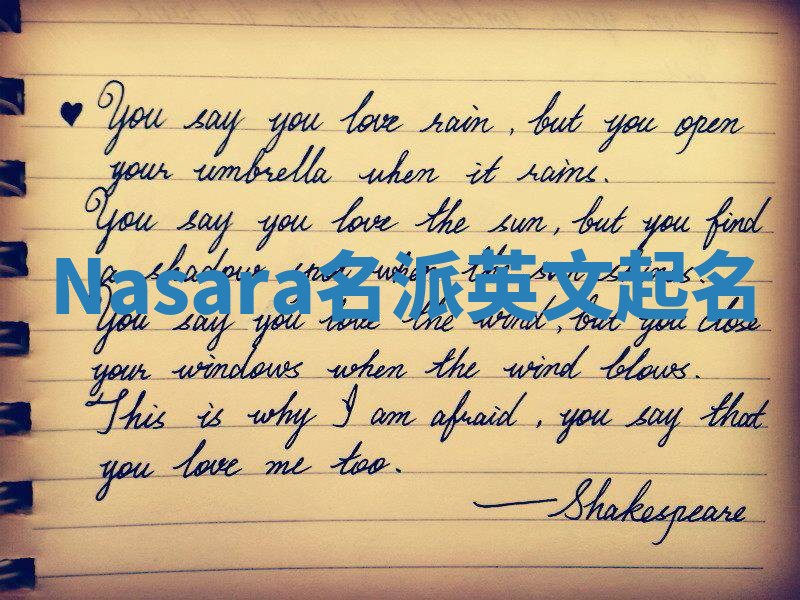 ♥ You say you love rain, but you open
your umbrella when it rains.
You say you love the sun, but you find
a shadow spot when the sun shines.
Nasara名派英文起名
You say you love the wind, but you close
your windows when the wind blows.
This is why I am afraid, you say that
you love me too.
—Shakespeare